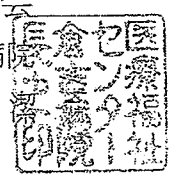 医療福祉
センター
倉吉病院
長之印
院